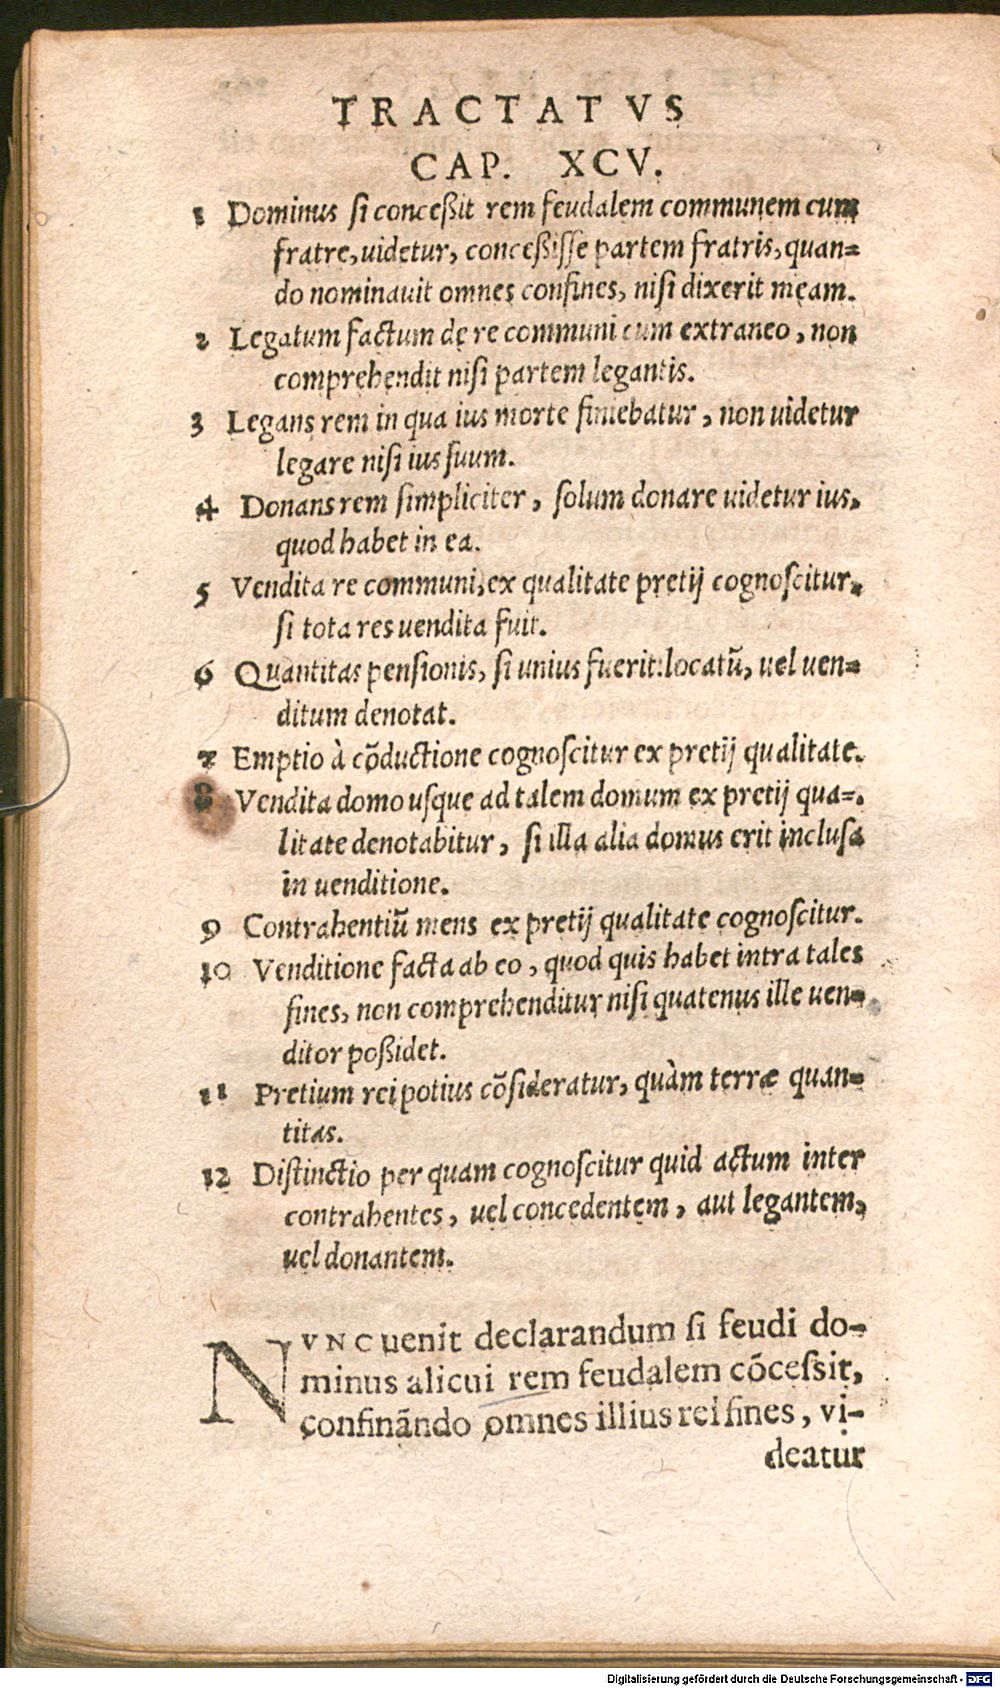 TRACTATVS
CAP. XCV.
1 Dominus si conceßit rem feudalem communem cum
fratre, uidetur, conceßisse partem fratris, quan=
do nominauit omnes confines, nisi dixerit meam.
2 Legatum factum de re communi cum extraneo, non
comprehendit nisi partem legantis.
3 Legans rem in qua ius morte finiebatur, non uidetur
legare nisi ius suum.
4 Donans rem simpliciter, solum donare uidetur ius,
quod habet in ea.
5 Vendita re communi, ex qualitate pretij cognoscitur,
si tota res uendita fuit.
6 Quantitas pensionis, si unius fuerit: locatū, uel uen=
ditum denotat.
7 Emptio à cōductione cognoscitur ex pretij qualitate.
8 Vendita domo usque ad talem domum ex pretij qua=
litate denotabitur, si illa alia domus erit inclusa
in uenditione.
9 Contrahentiū mens ex pretij qualitate cognoscitur.
10 Venditione facta ab eo, quod quis habet intra tales
fines, non comprehenditur nisi quatenus ille uen=
ditor poßidet.
11 Pretium rei potius cōsideratur, quàm terræ quan=
titas.
12 Distinctio per quam cognoscitur quid actum inter
contrahentes, uel concedentem, aut legantem,
uel donantem.
NVNC uenit declarandum si feudi do-
minus alicui rem feudalem cōcessit,
confinãndo omnes illius rei fines, vi-
deatur
Digitalisierung gefördert durch die Deutsche Forschungsgemeinschaft - DFG